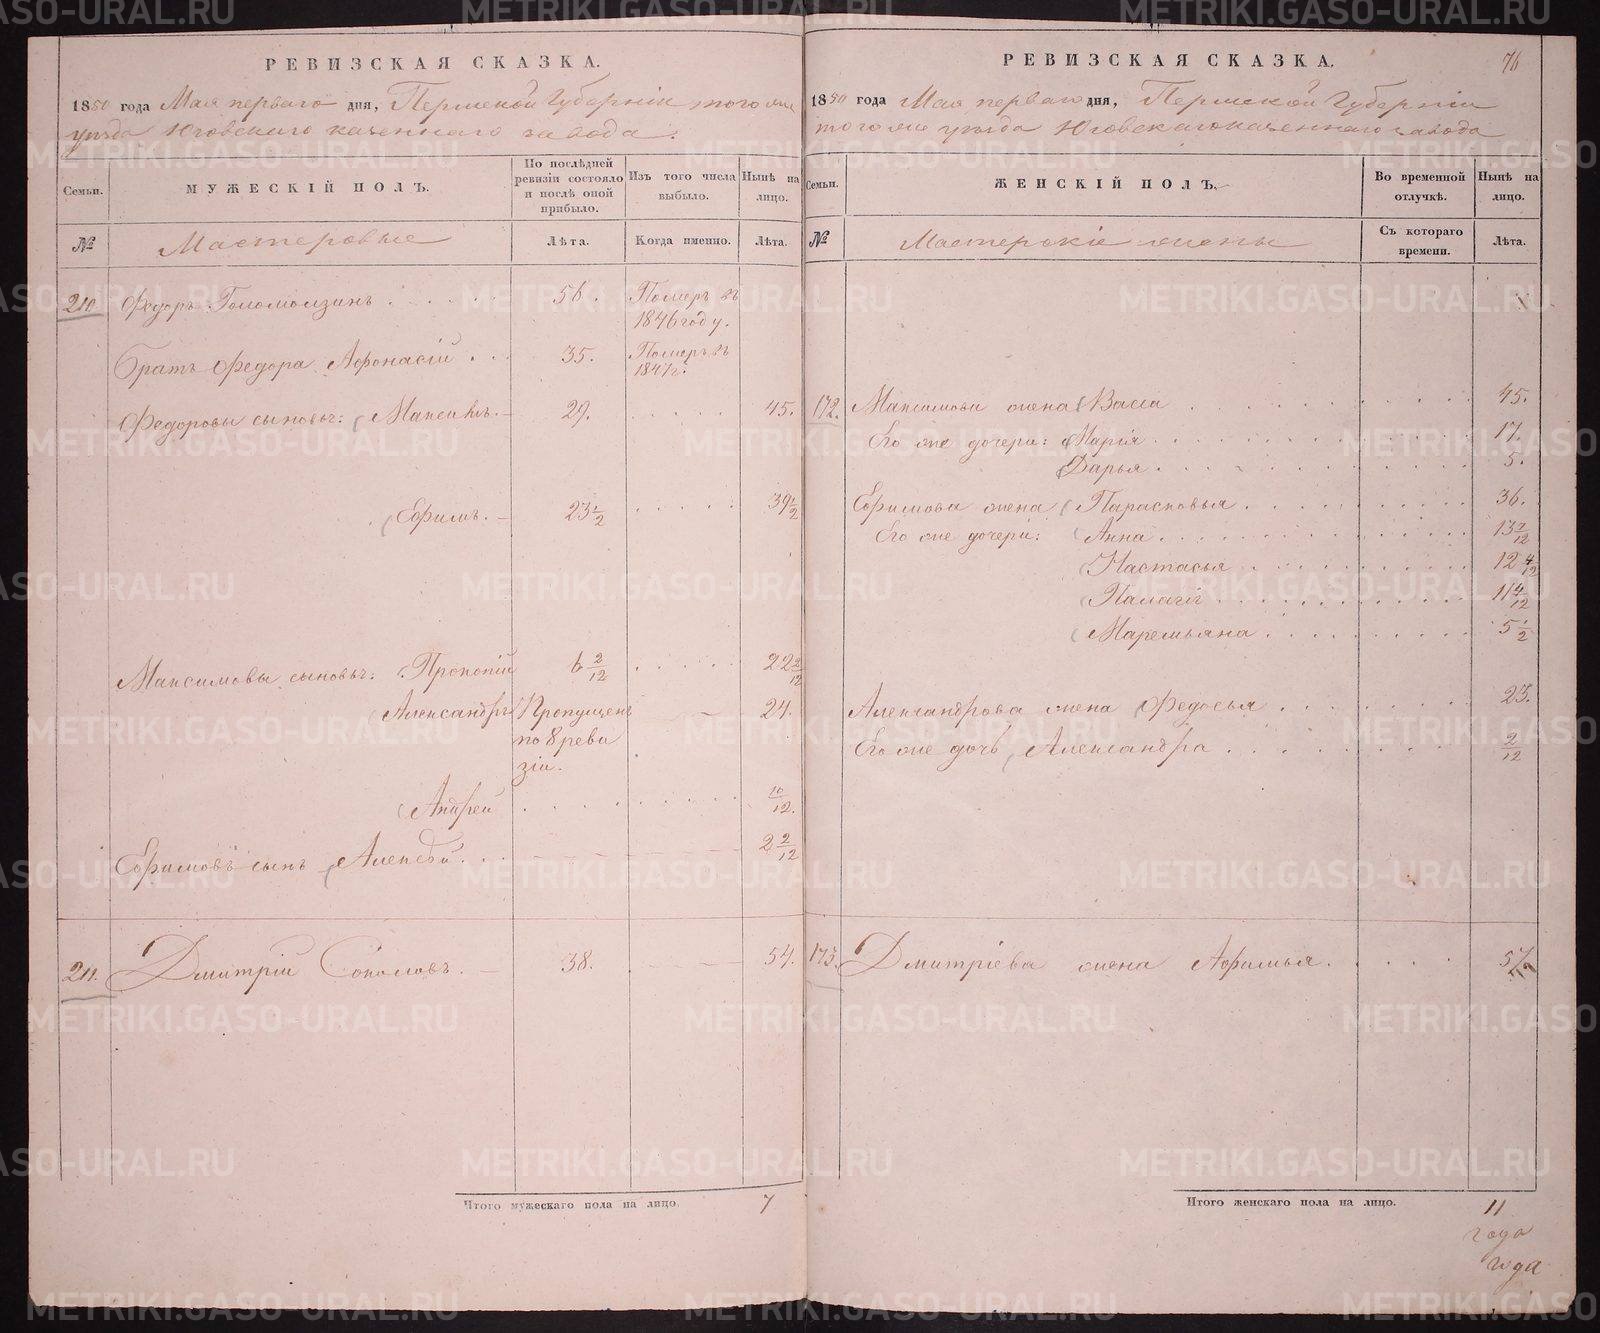 РЕВИЗСКАЯ СКАЗКА.
1850 года Мая перваго дня, Пермской Губерніи того же
уезда Юговскаго казеннаго завода.
Семьи.
МУЖЕСКІЙ ПОЛЪ.
По послѣдней ревизіи состояло и послѣ оной прибыло.
Изъ того числа выбыло.
Нынѣ на лицо.
№
Мастеровые
Лѣта.
Когда именно.
Лѣта.
210 Федоръ Голомолзинъ 56. Померъ въ
1846 году.
братъ Федора Афонасій 35. Померъ въ
1847 г.
Федоровы сыновья: Максимъ. 29. 45.
Ефимъ. 23 1/2 39 1/2
Максимовы сыновья: Прокопій 6 2/12 22 2/12
Александръ Пропущенъ 24.
по 8 реви
зіи.
Андрей 10/12.
Ефимовъ сынъ Алексѣй 2 2/12
211. Дмитрій Соколовъ. 38. 54.
Итого мужескаго пола на лицо. 7
РЕВИЗСКАЯ СКАЗКА.
76
1850 года Мая перваго дня, Пермской Губерніи
того же уезда Юговскаго казеннаго завода
Семьи.
ЖЕНСКІЙ ПОЛЪ.
Во временной отлучкѣ.
Нынѣ на лицо.
№
Мастерскіе жены
Съ котораго времени.
Лѣта.
172. Максимова жена Васса 45.
Его же дочери: Марія 17.
Дарья 5.
Ефимова жена Парасковья 36.
Его же дочери: Анна 13 7/12
Настасья 12 4/12
Палагія 11 4/12
Маремьяна 5 1/2
Александрова жена Федосья 23.
Его же дочь Александра 2/12
173. Дмитріева жена Афимья. 57
Итого женскаго пола на лицо. 11
года
года
METRIKI.GASO-URAL.RU